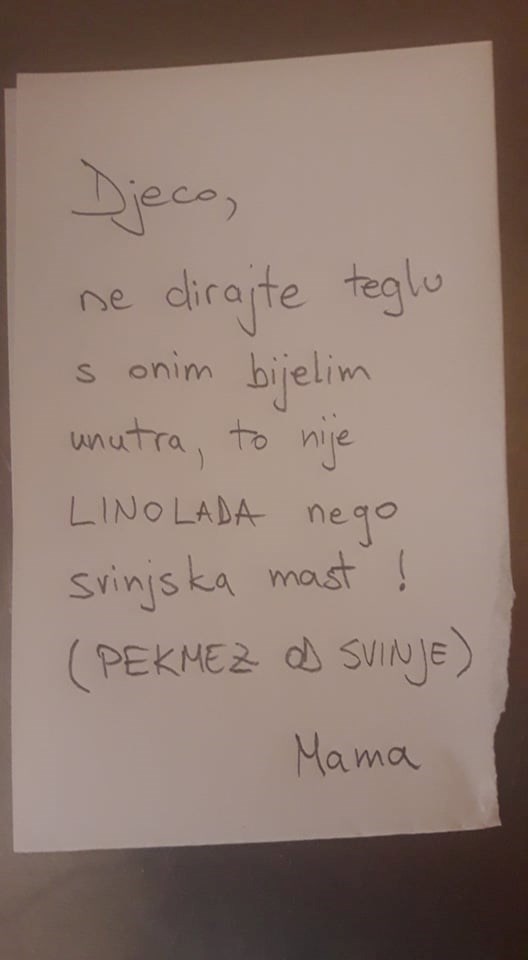 Djeco,
ne dirajte teglu
s onim bijelim
unutra, to nije
LINOLADA nego
svinjska mast !
(PEKMEZ OD SVINJE)
Mama